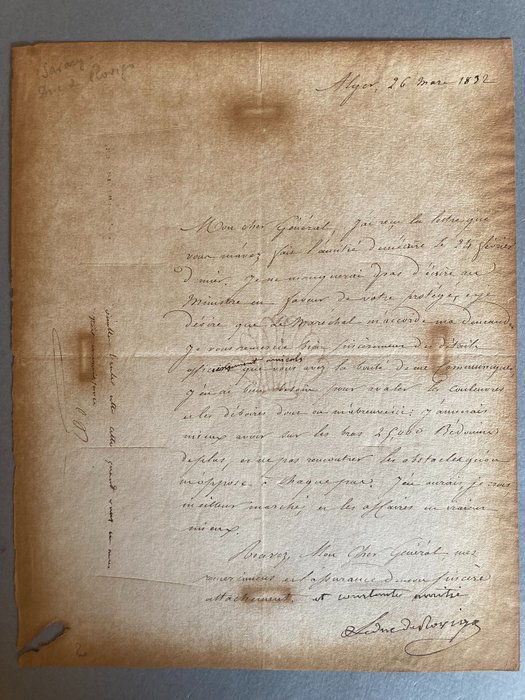 Savary
Duc de Rovigo
Alger, 26 Mars 1832
Mon cher Général, J'ai reçu la lettre que
vous m'avez fait l'amitié d'écrire le 24 février
Je ne manquerai pas d'écrire au
Ministre en faveur de votre protégé, et je
désire que le Maréchal m'accorde ma demande.
Je vous remercie bien sincèrement des détails
que vous avez la bonté de me communiquer,
j'en ai bien besoin pour avaler les couleuvres
et les déboires dont on m'abreuve ici; j'aimerais
mieux avoir sur les bras 25,000 Bédouins
de plus, et ne pas rencontrer les obstacles qu'on
m'oppose à chaque pas. J'en aurais je crois
meilleur marché, et les affaires en iraient
mieux.
Recevez, Mon Cher Général, mes
et l'assurance de mon sincère
attachement. et constante amitié
Le duc de Rovigo